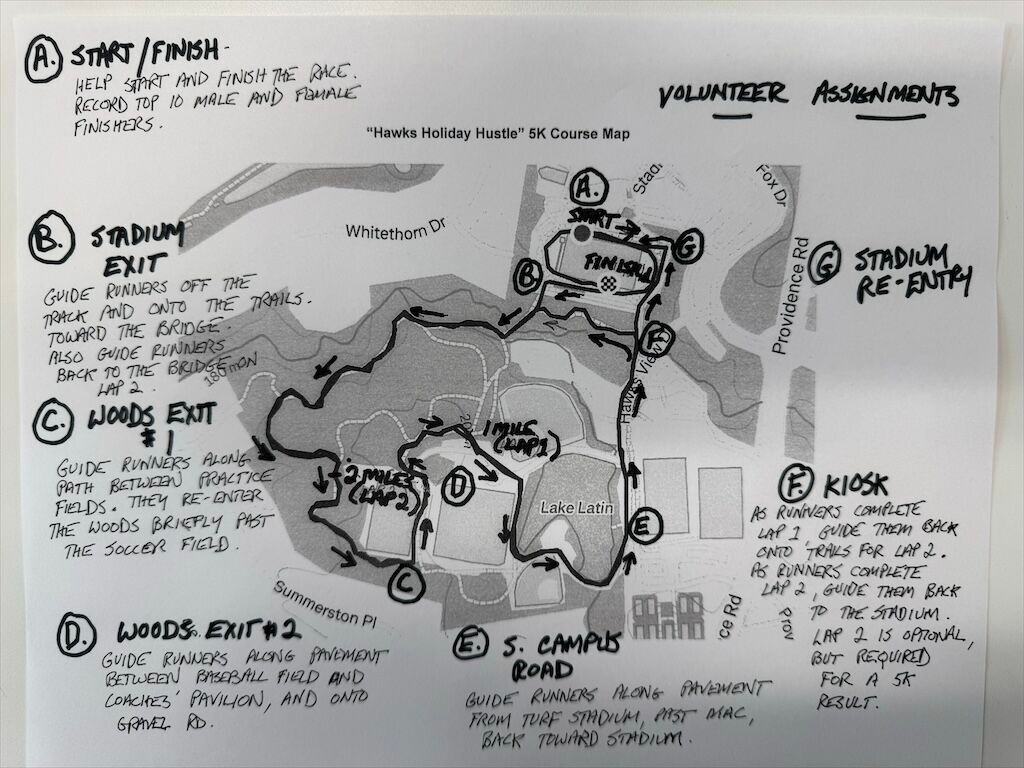 A. START/FINISH-
HELP START AND FINISH THE RACE.
RECORD TOP 10 MALE AND FEMALE
FINISHERS.
VOLUNTEER ASSIGNMENTS
"Hawks Holiday Hustle" 5K Course Map
A.
START
Stadi
Fox Dr
Whitethorn Dr
G
FINISH
B
B. STADIUM
EXIT
GUIDE RUNNERS OFF THE
TRACK AND ONTO THE TRAILS.
TOWARD THE BRIDGE.
ALSO GUIDE RUNNERS
BACK TO THE BRIDGE ON
LAP 2.
G STADIUM
RE-ENTRY
Providence Rd
F
Hawks View D
180 m
200m
C. WOODS EXIT
#1
GUIDE RUNNERS ALONG
PATH BETWEEN PRACTICE
FIELDS. THEY RE-ENTER
THE WOODS BRIEFLY PAST
THE SOCCER FIELD.
1 MILE
(LAP 1)
2 MILES
(LAP 2)
D
Lake Latin
E
C
Summerston Pl
ce Rd
Prov
F. KIOSK
AS RUNNERS COMPLETE
LAP 1, GUIDE THEM BACK
ONTO TRAILS FOR LAP 2.
AS RUNNERS COMPLETE
LAP 2, GUIDE THEM BACK
TO THE STADIUM.
LAP 2 IS OPTIONAL,
BUT REQUIRED
FOR A 5K
RESULT.
D. WOODS EXIT #2
GUIDE RUNNERS ALONG PAVEMENT
BETWEEN BASEBALL FIELD AND
COACHES' PAVILION, AND ONTO
GRAVEL RD.
E. S. CAMPUS
ROAD
GUIDE RUNNERS ALONG PAVEMENT
FROM TURF STADIUM, PAST MAC,
BACK TOWARD STADIUM.